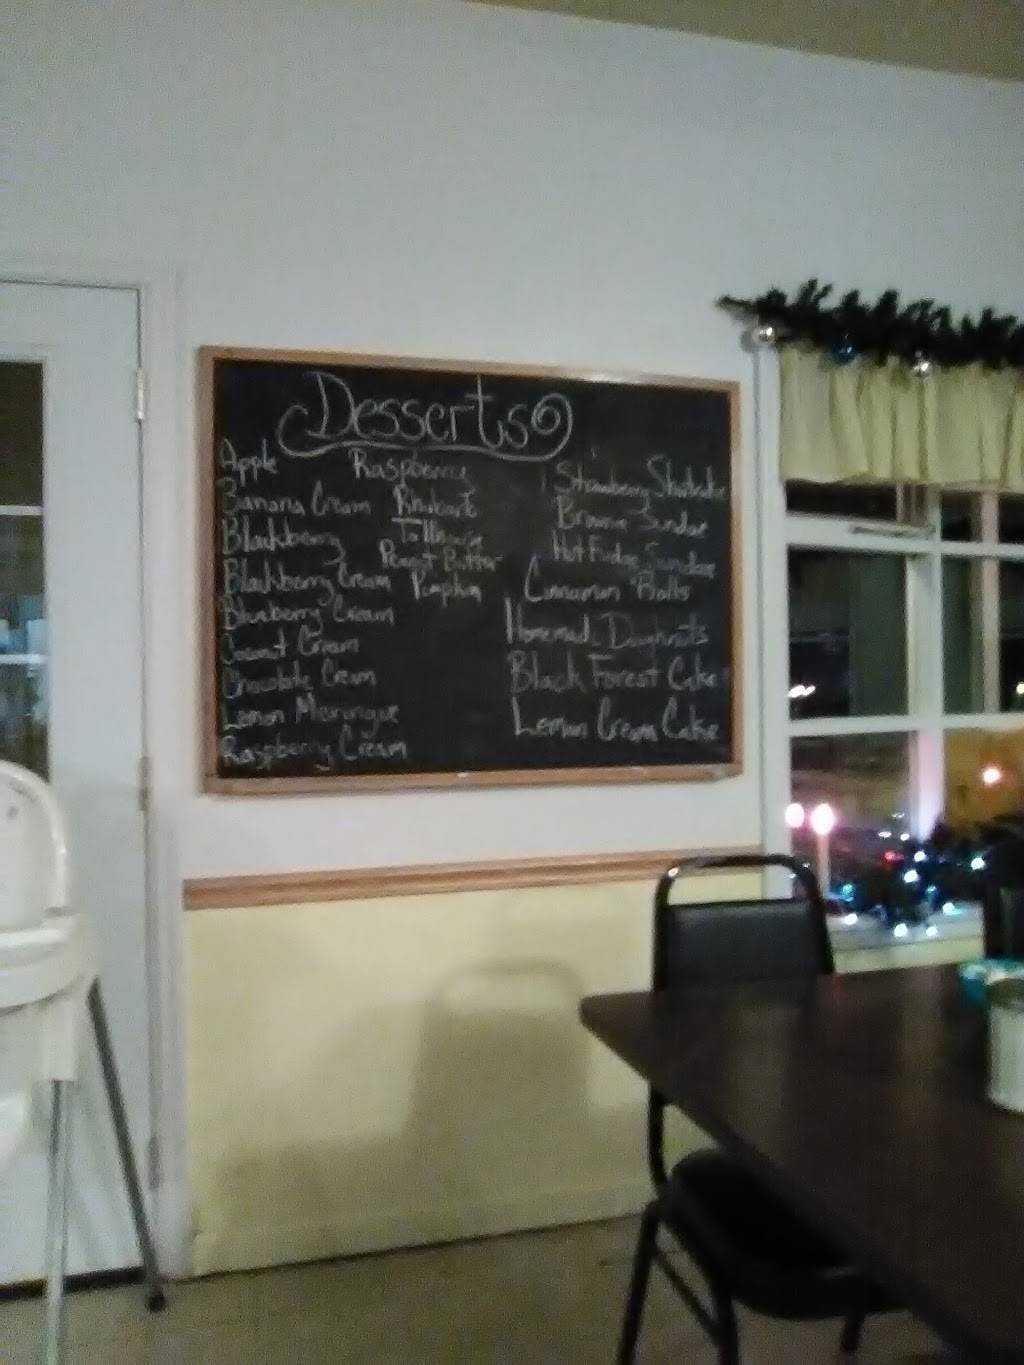 Desserts
Apple
Banana Cream
Blackberry
Blackberry Cream
Blueberry Cream
Coconut Cream
Chocolate Cream
Lemon Meringue
Raspberry Cream
Raspberry
Rhubarb
Peanut Butter
Pumpkin
Strawberry Shortcake
Brownie Sundae
Hot Fudge Sundae
Cinnamon Rolls
Homemade Doughnuts
Black Forest Cake
Lemon Cream Cake